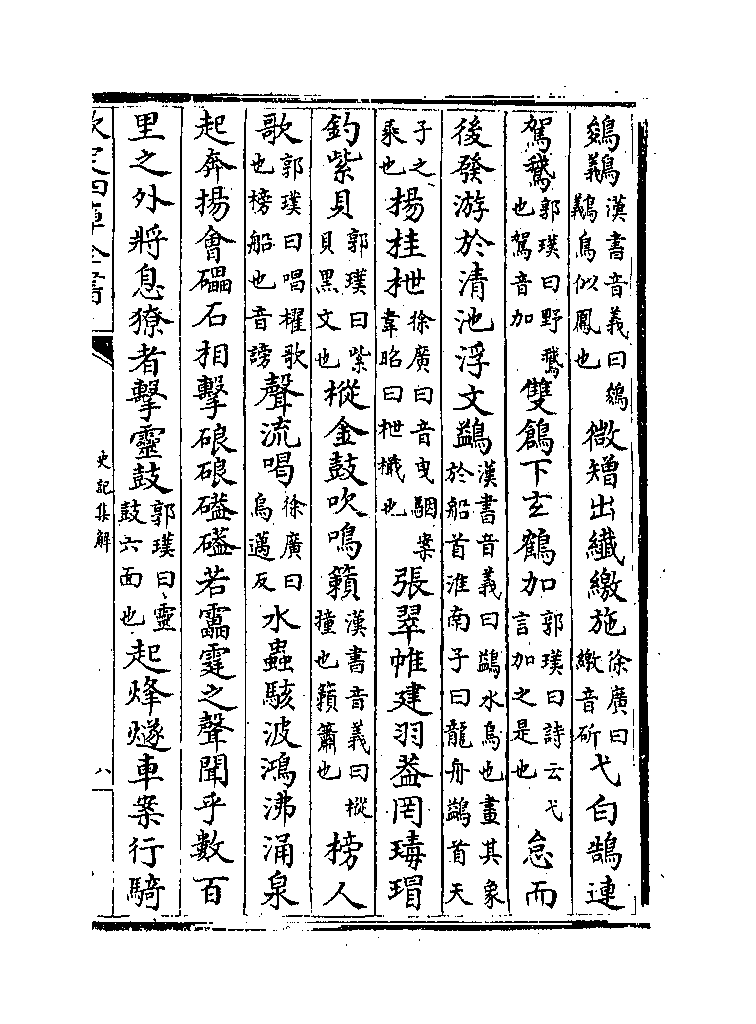 鵕鸃漢書音義曰鵕鸃鳥似鳳也微矰出纖繳施徐廣曰繳音斫弋白鵠連
駕鵞郭璞曰野鵞也駕音加雙鶬下玄鶴加郭璞曰詩云弋言加之是也怠而
後發游於清池浮文鷁漢書音義曰鷁水鳥也畫其象於船首淮南子曰龍舟鷁首天
子之乘也揚桂枻徐廣曰音曳駰案韋昭曰枻檝也張翠帷建羽葢罔瑇瑁
釣紫貝郭璞曰紫貝黑文也樅金鼓吹鳴籟漢書音義曰樅撞也籟簫也榜人
歌郭璞曰唱櫂歌也榜船也音謗聲流喝徐廣曰烏邁反水蟲駭波鴻沸涌泉
起奔揚會礧石相擊硠硠礚礚若靁霆之聲聞乎數百
里之外將息獠者擊靈鼓郭璞曰靈鼓六面也起烽燧車案行騎
欽定四庫全書
史記集解
八